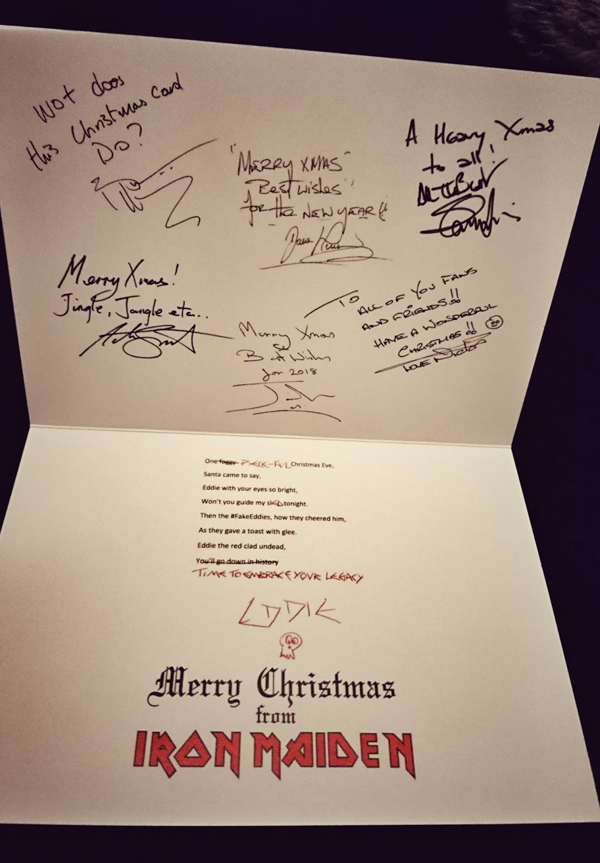 Wot does
this Christmas card
Do?
"MERRY XMAS"
Best wishes"
for the NEW YEAR!(
A Heavy Xmas
to all!
Merry Xmas!
Jingle, Jangle etc..
Merry Xmas
Best Wishes
for 2018
TO
ALL OF YOU FANS
AND FRIENDS!!
HAVE A WONDERFUL
CHRISTMAS!!
LOVE
One foggy PIECE-FUL Christmas Eve,
Santa came to say,
Eddie with your eyes so bright,
Won't you guide my tonight.
Then the #FakeEddies, how they cheered him,
As they gave a toast with glee.
Eddie the red clad undead,
You'll go down in history
TIME TO EMBRACE YOUR LEGACY
EDDIE
Merry Christmas
from
IRON MAIDEN